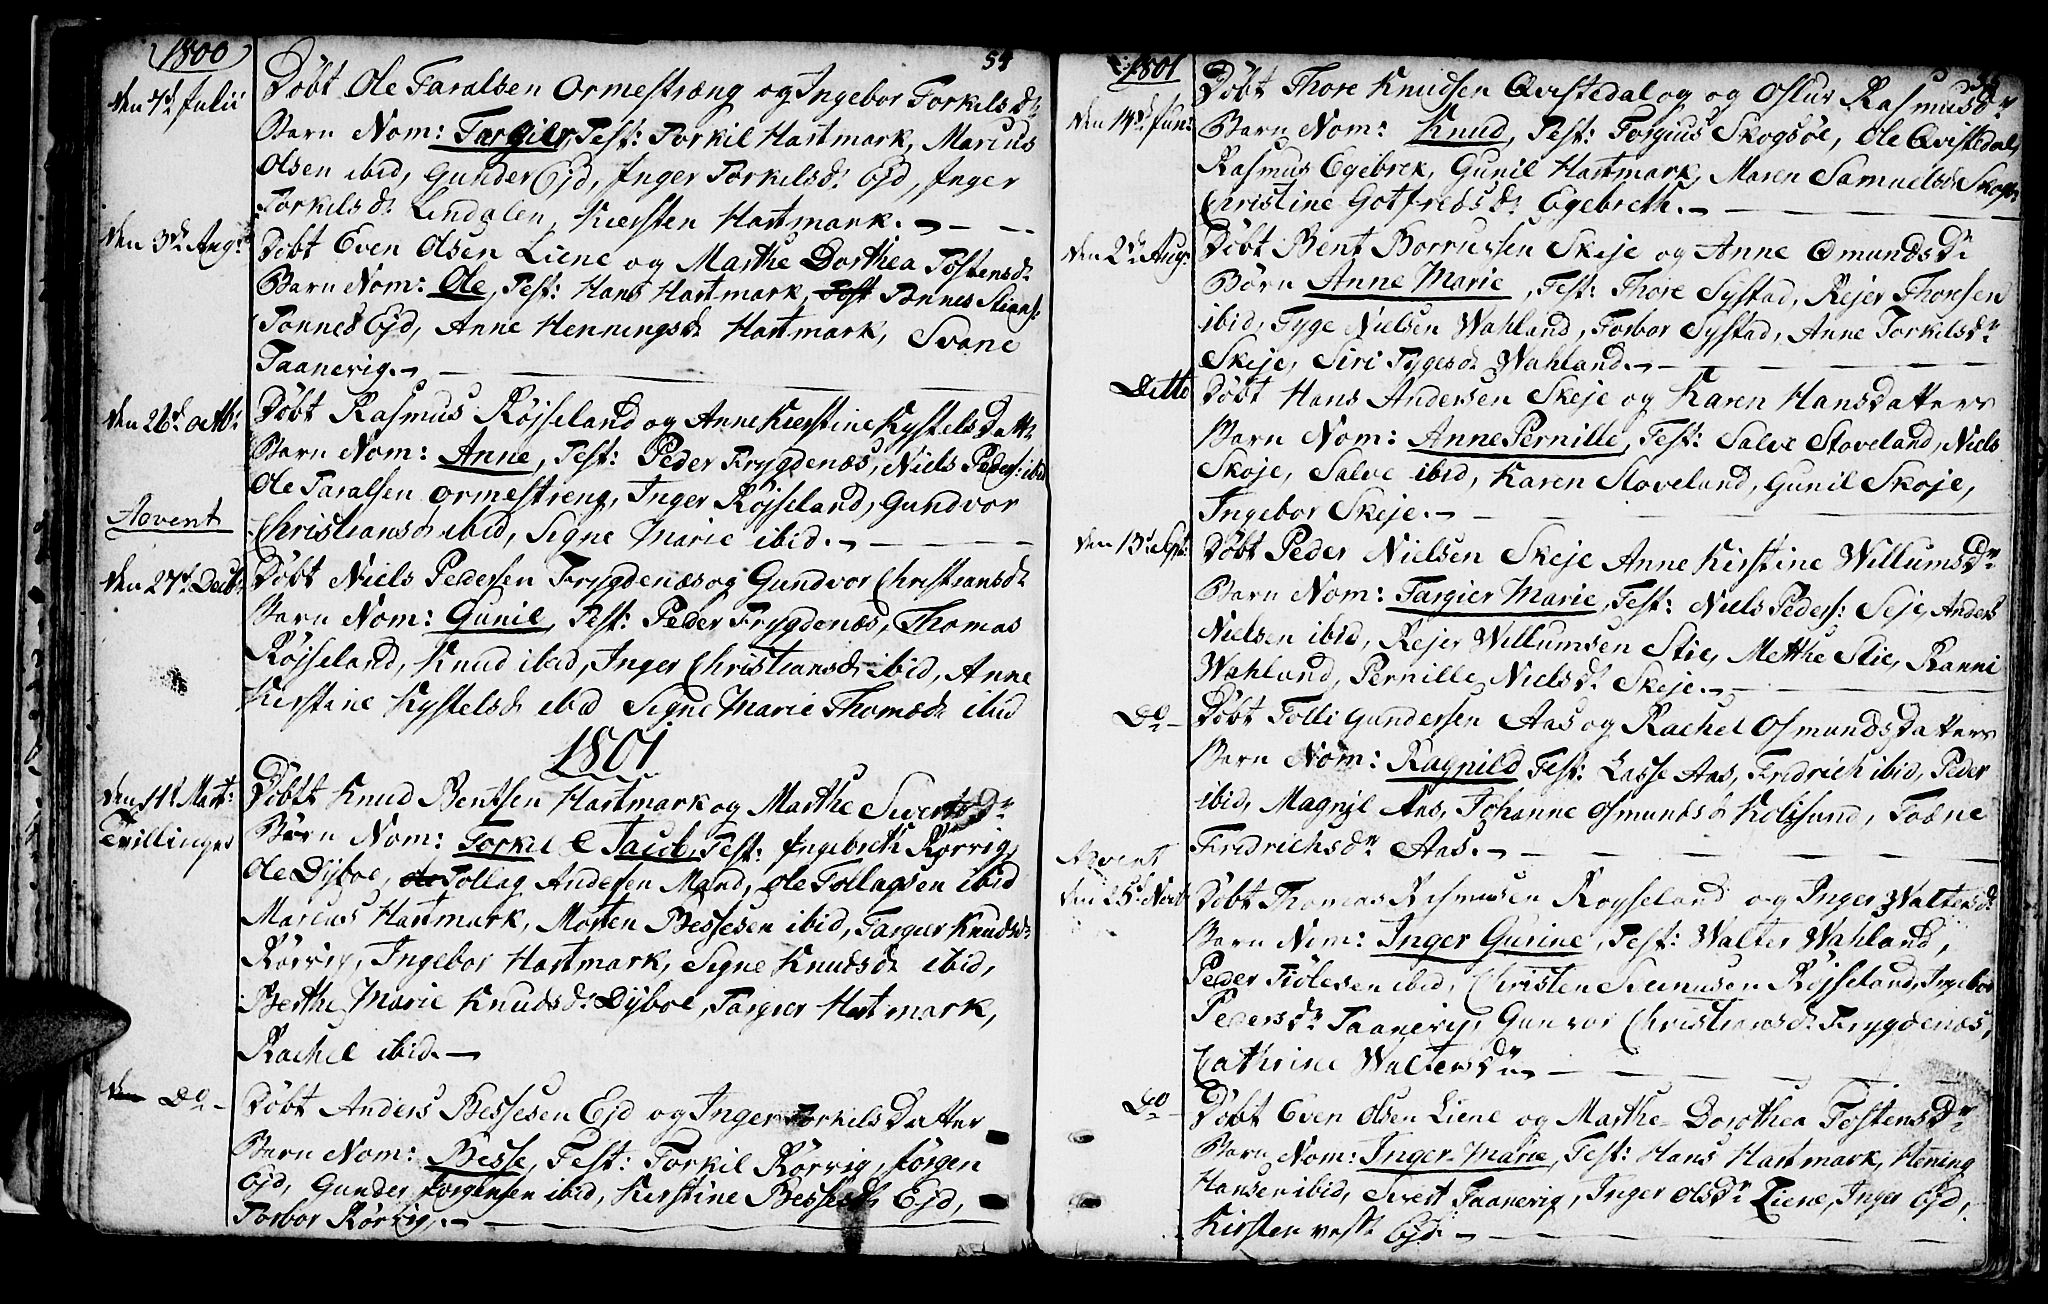 1800
54
den 7d Julii
Döbt Ole Taralsen Ormestræng og Ingebor Torkilsdr
Barn Nom: Targier, Test: Torkil Hartmark, Marcus
Olsen ibid, Gunder Ejd, Inger Torkilsdr Ejd, Inger
Torkilsdr Lindalen, Kiersten Hartmark.
den 3d Augs
Döbt Even Olsen Liene og Marthe Dorthea Tostensdr
Barn Nom: Ole, Test: Hans Hartmark, Tönnes Stians:
Tönnes Ejd, Anne Henningsdr Hartmark, Svane
Taanevig.
den 26d octbr
Döbt Rasmus Röjseland og Anne Kierstine Kystels Dattr
Barn Nom: Anne, Test: Peder Frygdenæs, Niels Peders: ibid
Ole Taralsen ormestreng, Inger Röjseland, Gundvor
Advent
Christiansdr ibid, Segne Marie ibid.
den 27d Decbr
Döbt Niels Pedersen Frygdenæs og Gundvor Christiansdr
Barn Nom: Gunil, Test: Peder Frygdenæs, Thomas
Röjseland, Knud ibid, Inger Christiansdr ibid, Anne
Kirstine Kystelsdr ibid Segne Marie Thomsdr ibid
1801
den 1t Mart:
Döbtt Knud Bentsen Hartmark og Marthe Sivertsdr
Tvillinger
Börn Nom: Torkel & Jacob, Test: Ingebreth Rörvig,
Ole Dÿboe, Tollag Andersen Mand, Ole Tollagsen ibid
Marcus Hartmark, Morten Bessesen ibid, Targier Knudsdr
Rörvig, Ingebor Hartmark, Segne Knudsdr ibid,
Berthe Marie Knudsdr Dÿboe, Targier Hartmark,
Rachel ibid.
Do
Döbt Anders Bessesen Ejd og Inger Torkels Datter
Barn Nom: Besse, Test: Torkil Rörvig, Jörgen
Ejd, Gunder Jörgensen ibid, Kirstine Bessesdr Ejd,
Torbor Rörvig.
1801
den 14d Juni
Döbt Thore Knudsen Qvistedal og Oslur Rasmusdr
Barn Nom: Knud, Test: Torgius Skogsöe, Ole Qvistedal,
Rasmus Egebrek, Gunil Hartmark, Maren Samuelsdr
Christine Gotfredsdr Egebreth.
den 2d Aug:
Döbt Bent Borrussen Skeje og Anne Omundsdr
Börn Anne Marie, Test: Thore Systad, Rejer Thoresen
ibid, Tyge Nielsen Wahland, Torbor Systad, Anne Torkilsdr
Skeje, Siri Tygesdr Wahland.
Ditto
Döbt Hans Andersen Skeje og Karen Hansdatters
Barn Nom: Anne Pernille, Test: Salve Stoveland, Niels
Skoje, Salve ibid, Karen Stoveland, Gunil Skoje,
Ingebor Skeje.
den 13d Sept:
Döbt Peder Nielsen Skeje Anne Kirstine Willumsdr
Barn Nom: Targier Marie, Test: Niels Peders: Seje, Anders
Nielsen ibid, Rejer Willumsen Stie, Metthe Stie, Ranni
Wahland, Pernille Nielsdr Skeje.
Do
Döbt Tolli Gundersen Aas og Rachel Osmunds Datters
Barn Nom: Ragnild Test: Lasse Aas, Fredrich ibid, Peder
ibid, Magnil Aas, Johanne Osmundsdr Kolisund, Todne
Fredrichsdr Aas.
Advent
den 25d Novb
Döbt Thomas Rasmusen Royseland og Inger Waltersdr
Barn Nom: Inger Gurine, Test: Walter Wahland,
Peder Tiölesen ibid, Christen Röjseland, Ingebor
Pedersdr Taanevig, Gunvor Christiansdr Frygdenæs,
Cathrine Waltersdr
Do
Döbt Even Olsen Liene og Marthe Dorothea Tostensdr
Barn Nom: Inger Marie, Test: Hans Hartmark, Hening
Hansen ibid, Sivert Taanevig, Inger Olsdr Liene, Inger Ejd,
Kirsten vestr Ejd.